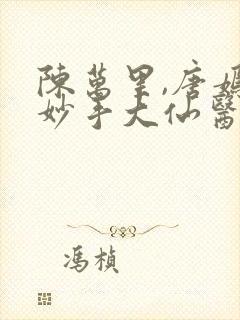 陳萬里,唐媽
妙手大仙醫
馮楨